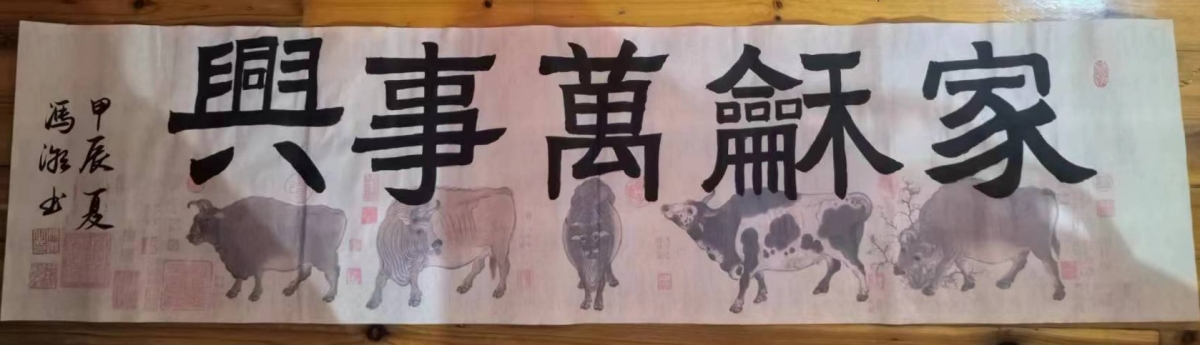 家龢萬事興
甲辰夏
馮瀚书